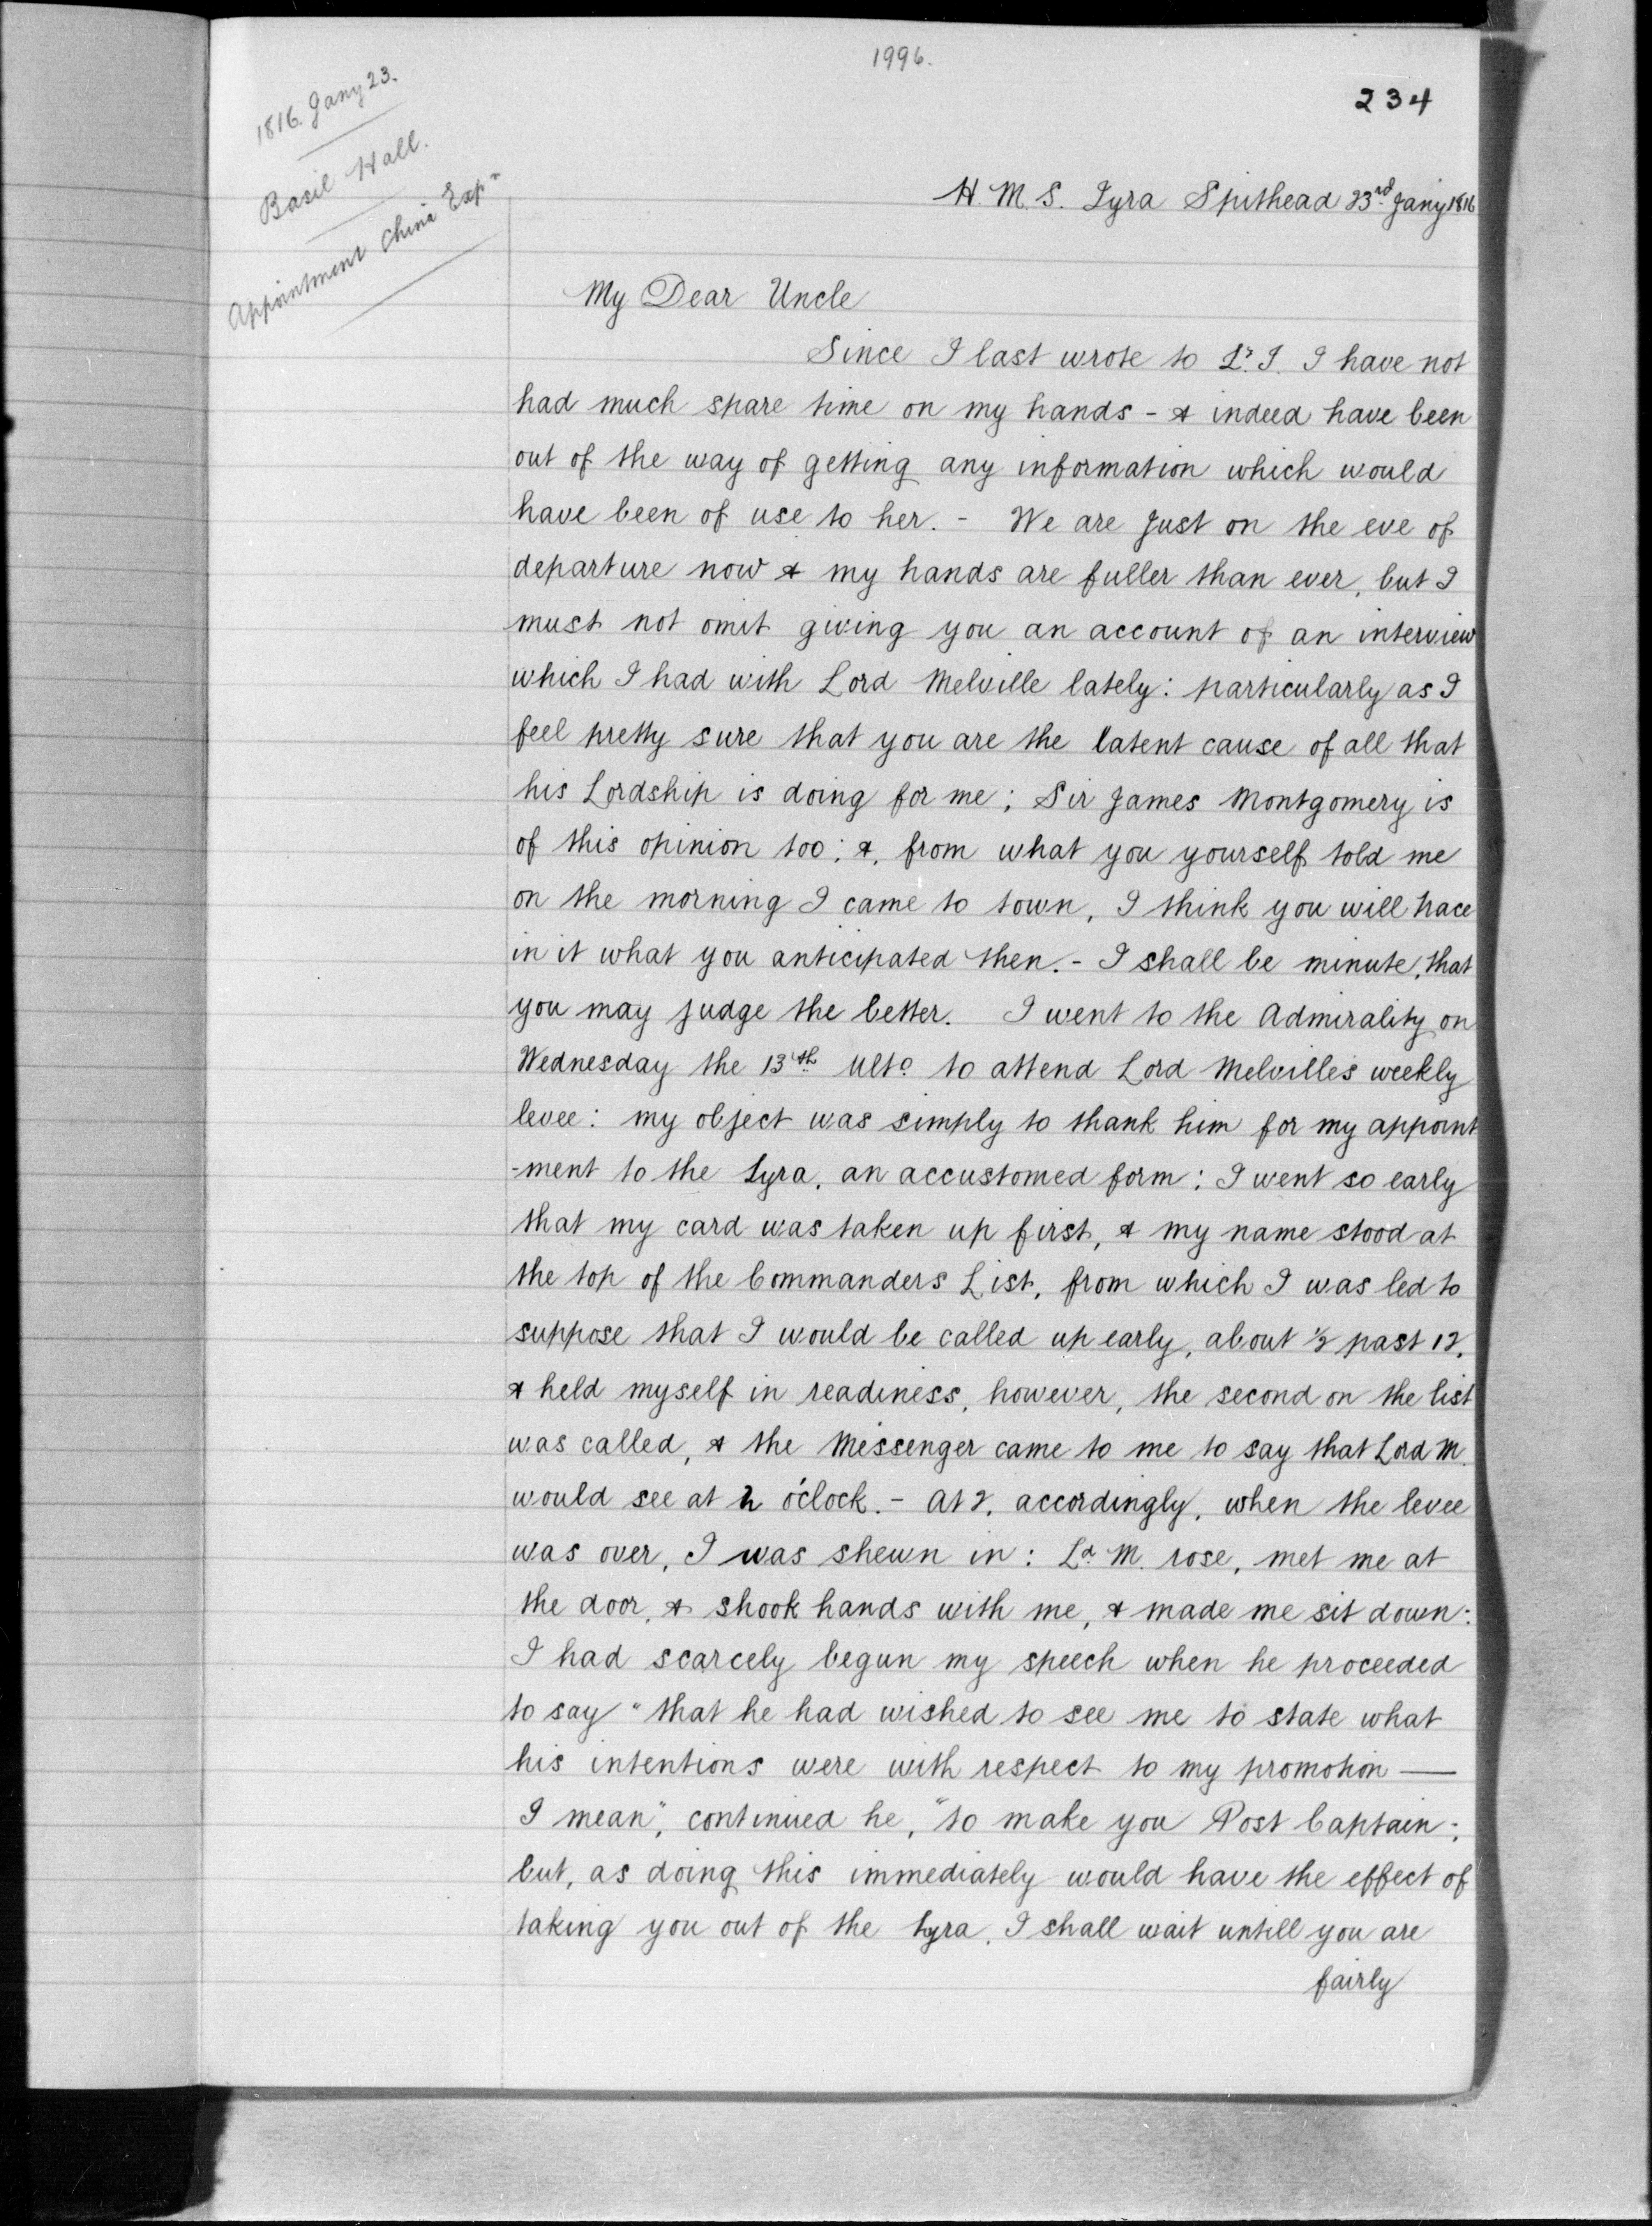 1996.
234
1816. Jany 23.
Basil Hall.
Appointment China Expn
H. M. S. Lyra Spithead 23rd Jany 1816
My Dear Uncle
Since I last wrote to Ly. I. I have not
had much spare time on my hands - & indeed have been
out of the way of getting any information which would
have been of use to her. - We are just on the eve of
departure now & my hands are fuller than ever, but I
must not omit giving you an account of an interview
which I had with Lord Melville lately: particularly as I
feel pretty sure that you are the latent cause of all that
his Lordship is doing for me; Sir James Montgomery is
of this opinion too; &, from what you yourself told me
on the morning I came to town, I think you will trace
in it what you anticipated then. - I shall be minute, that
you may judge the better. I went to the Admirality on
Wednesday the 13th Ulto to attend Lord Melville's weekly
levee: my object was simply to thank him for my appoint
-ment to the Lyra, an accustomed form; I went so early
that my card was taken up first, & my name stood at
the top of the Commanders List, from which I was led to
suppose that I would be called up early, about ½ past 12,
& held myself in readiness, however, the second on the list
was called, & the Messenger came to me to say that Lord M.
would see at 2 o'clock. - At 2, accordingly, when the levee
was over, I was shewn in: Ld. M. rose, met me at
the door, & shook hands with me, & made me sit down:
I had scarcely begun my speech when he proceeded
to say "that he had wished to see me to state what
his intentions were with respect to my promotion —
I mean", continued he, "to make you Post Captain;
but, as doing this immediately would have the effect of
taking you out of the Lyra, I shall wait untill you are
fairly